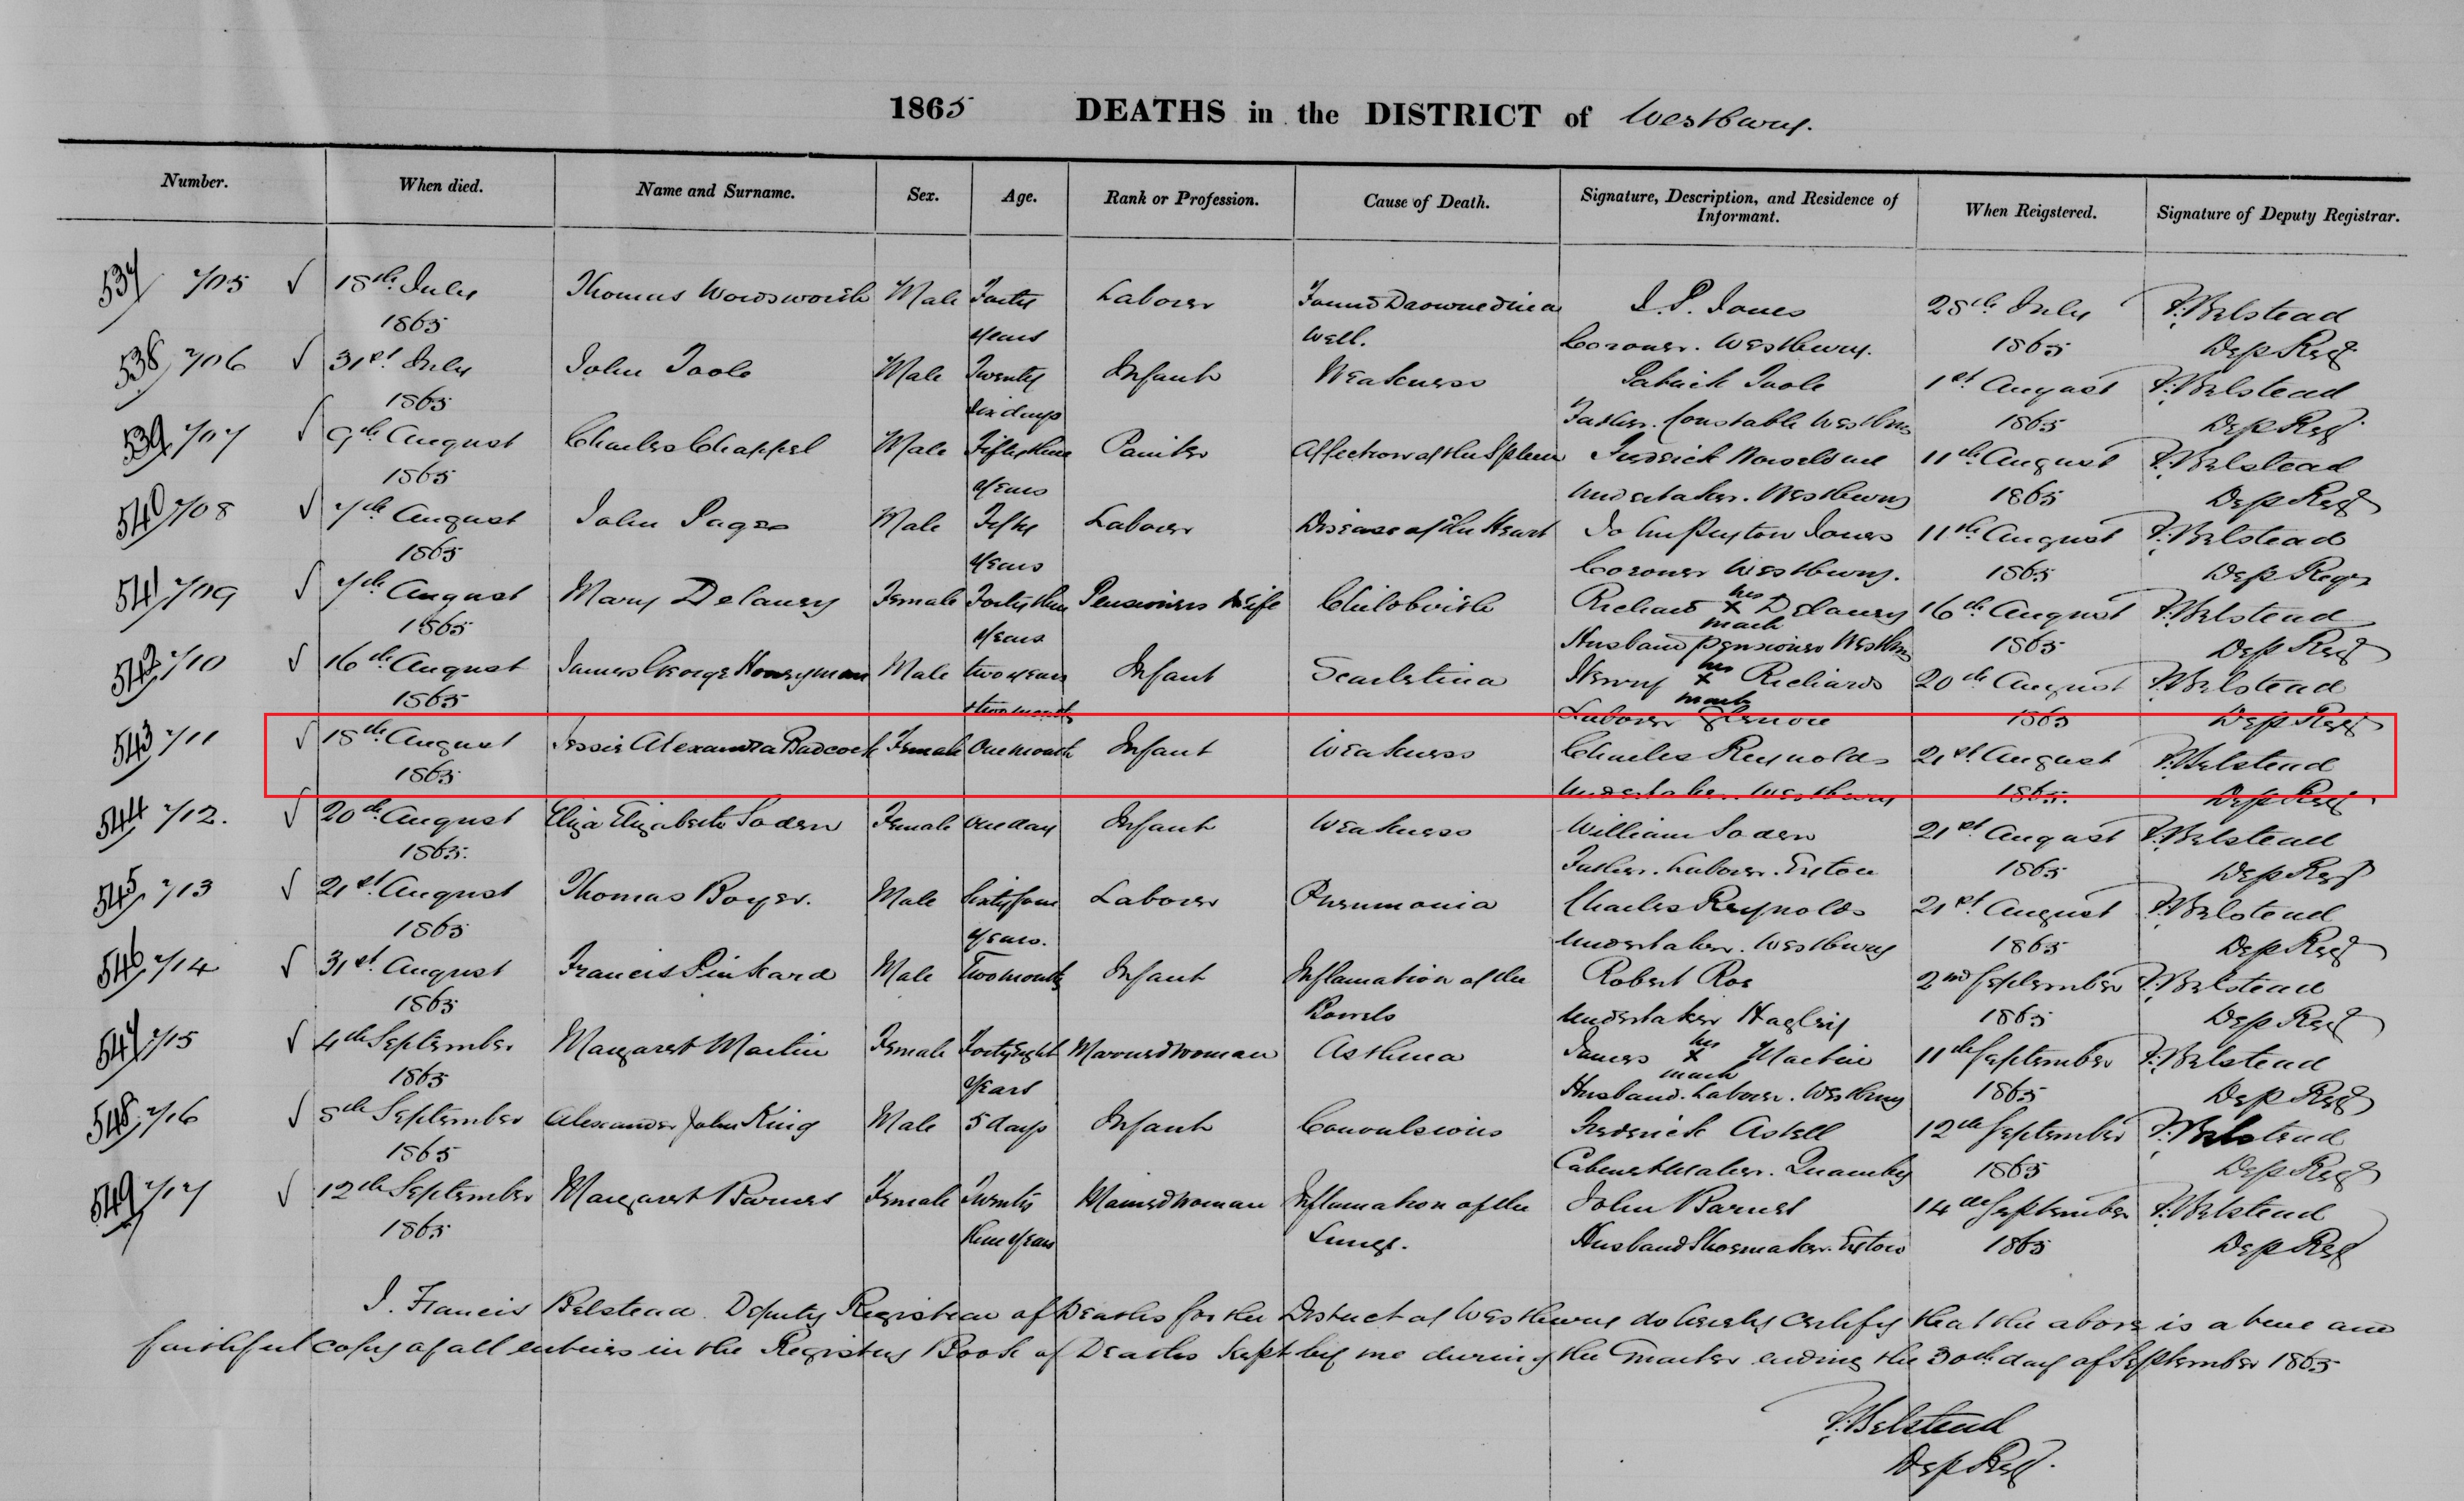 1865 DEATHS in the DISTRICT of Westbury.
Number. When died. Name and Surname. Sex. Age. Rank or Profession. Cause of Death. Signature, Description, and Residence of Informant. When Reigstered. Signature of Deputy Registrar.
537 705 √ 18th July Thomas Wordsworth Male Forty Laborer Found Drowned in a J. P. Jones 28th July F. Belstead
1865 years well. Coroner. Westbury. 1865 Dep Reg
538 706 √ 31st July John Toole Male Twenty Infant Weakness Patrick Toole 1st August F. Belstead
1865 six days Father. Constable Westbury 1865 Dep Reg
539 707 √ 9th August Charles Chappel Male Fifty three Painter Affection of the Spleen Frederick 11th August F. Belstead
1865 years Undertaker. Westbury 1865 Dep Reg
540 708 √ 7th August John Pagee Male Fifty Laborer Disease of the Heart John Peyton Jones 11th August F. Belstead
1865 years Coroner Westbury. 1865 Dep Reg
541 709 √ 7th August Mary Delaney Female Forty three Pensioners Wife Childbirth Richard his x mark Delaney 16th August F. Belstead
1865 years Husband pensioner Westbury 1865 Dep Reg
542 710 √ 16th August James George Honeyman Male two years Infant Scarletina Henry his x mark Richards 20th August F. Belstead
1865 & two months Laborer Glenore 1865 Dep Reg
543 711 √ 18th August Jessie Alexandra Badcock Female One month Infant Weakness Charles Reynolds 21st August F. Belstead
1865 Undertaker. Westbury 1865. Dep Reg
544 712. √ 20th August Eliza Elizabeth Soden Female One day Infant Weakness William Soden 21st August F. Belstead
1865. Father. Laborer. Exton 1865 Dep Reg
545 713 √ 21st August Thomas Boyer. Male Sixty four Laborer Pneumonia Charles Reynolds 21st August F. Belstead
1865 years. Undertaker. Westbury 1865 Dep Reg
546 714 √ 31st August Francis Pinkard Male Two months Infant Inflamation of the Robert Roe 2nd September F. Belstead
1865 Bowels Undertaker Hagley 1865 Dep Reg
547 715 √ 4th September Margaret Martin Female Forty Eight Married woman Asthma James his x mark Martin 11th September F. Belstead
1865 years Husband. Laborer. Westbury 1865 Dep Reg
548 716 √ 8th September Alexander John King Male 5 days Infant Convulsions Frederick Astell 12th September F. Belstead
1865 Cabinet Maker. Quamby 1865 Dep Reg
549 717 √ 12th September Margaret Barnes Female Twenty Married woman Inflamation of the John Barnes 14th September F. Belstead
1865 three years Lungs. Husband Shoemaker. Exton 1865 Dep Reg
I. Francis Belstead. Deputy Registrar of Deaths for the District of Westbury do hereby certify that the above is a true and
faithful copy of all entries in the Registry Book of Deaths kept by me during the Quarter ending the 30th day of September 1865
F. Belstead
Dep Reg.